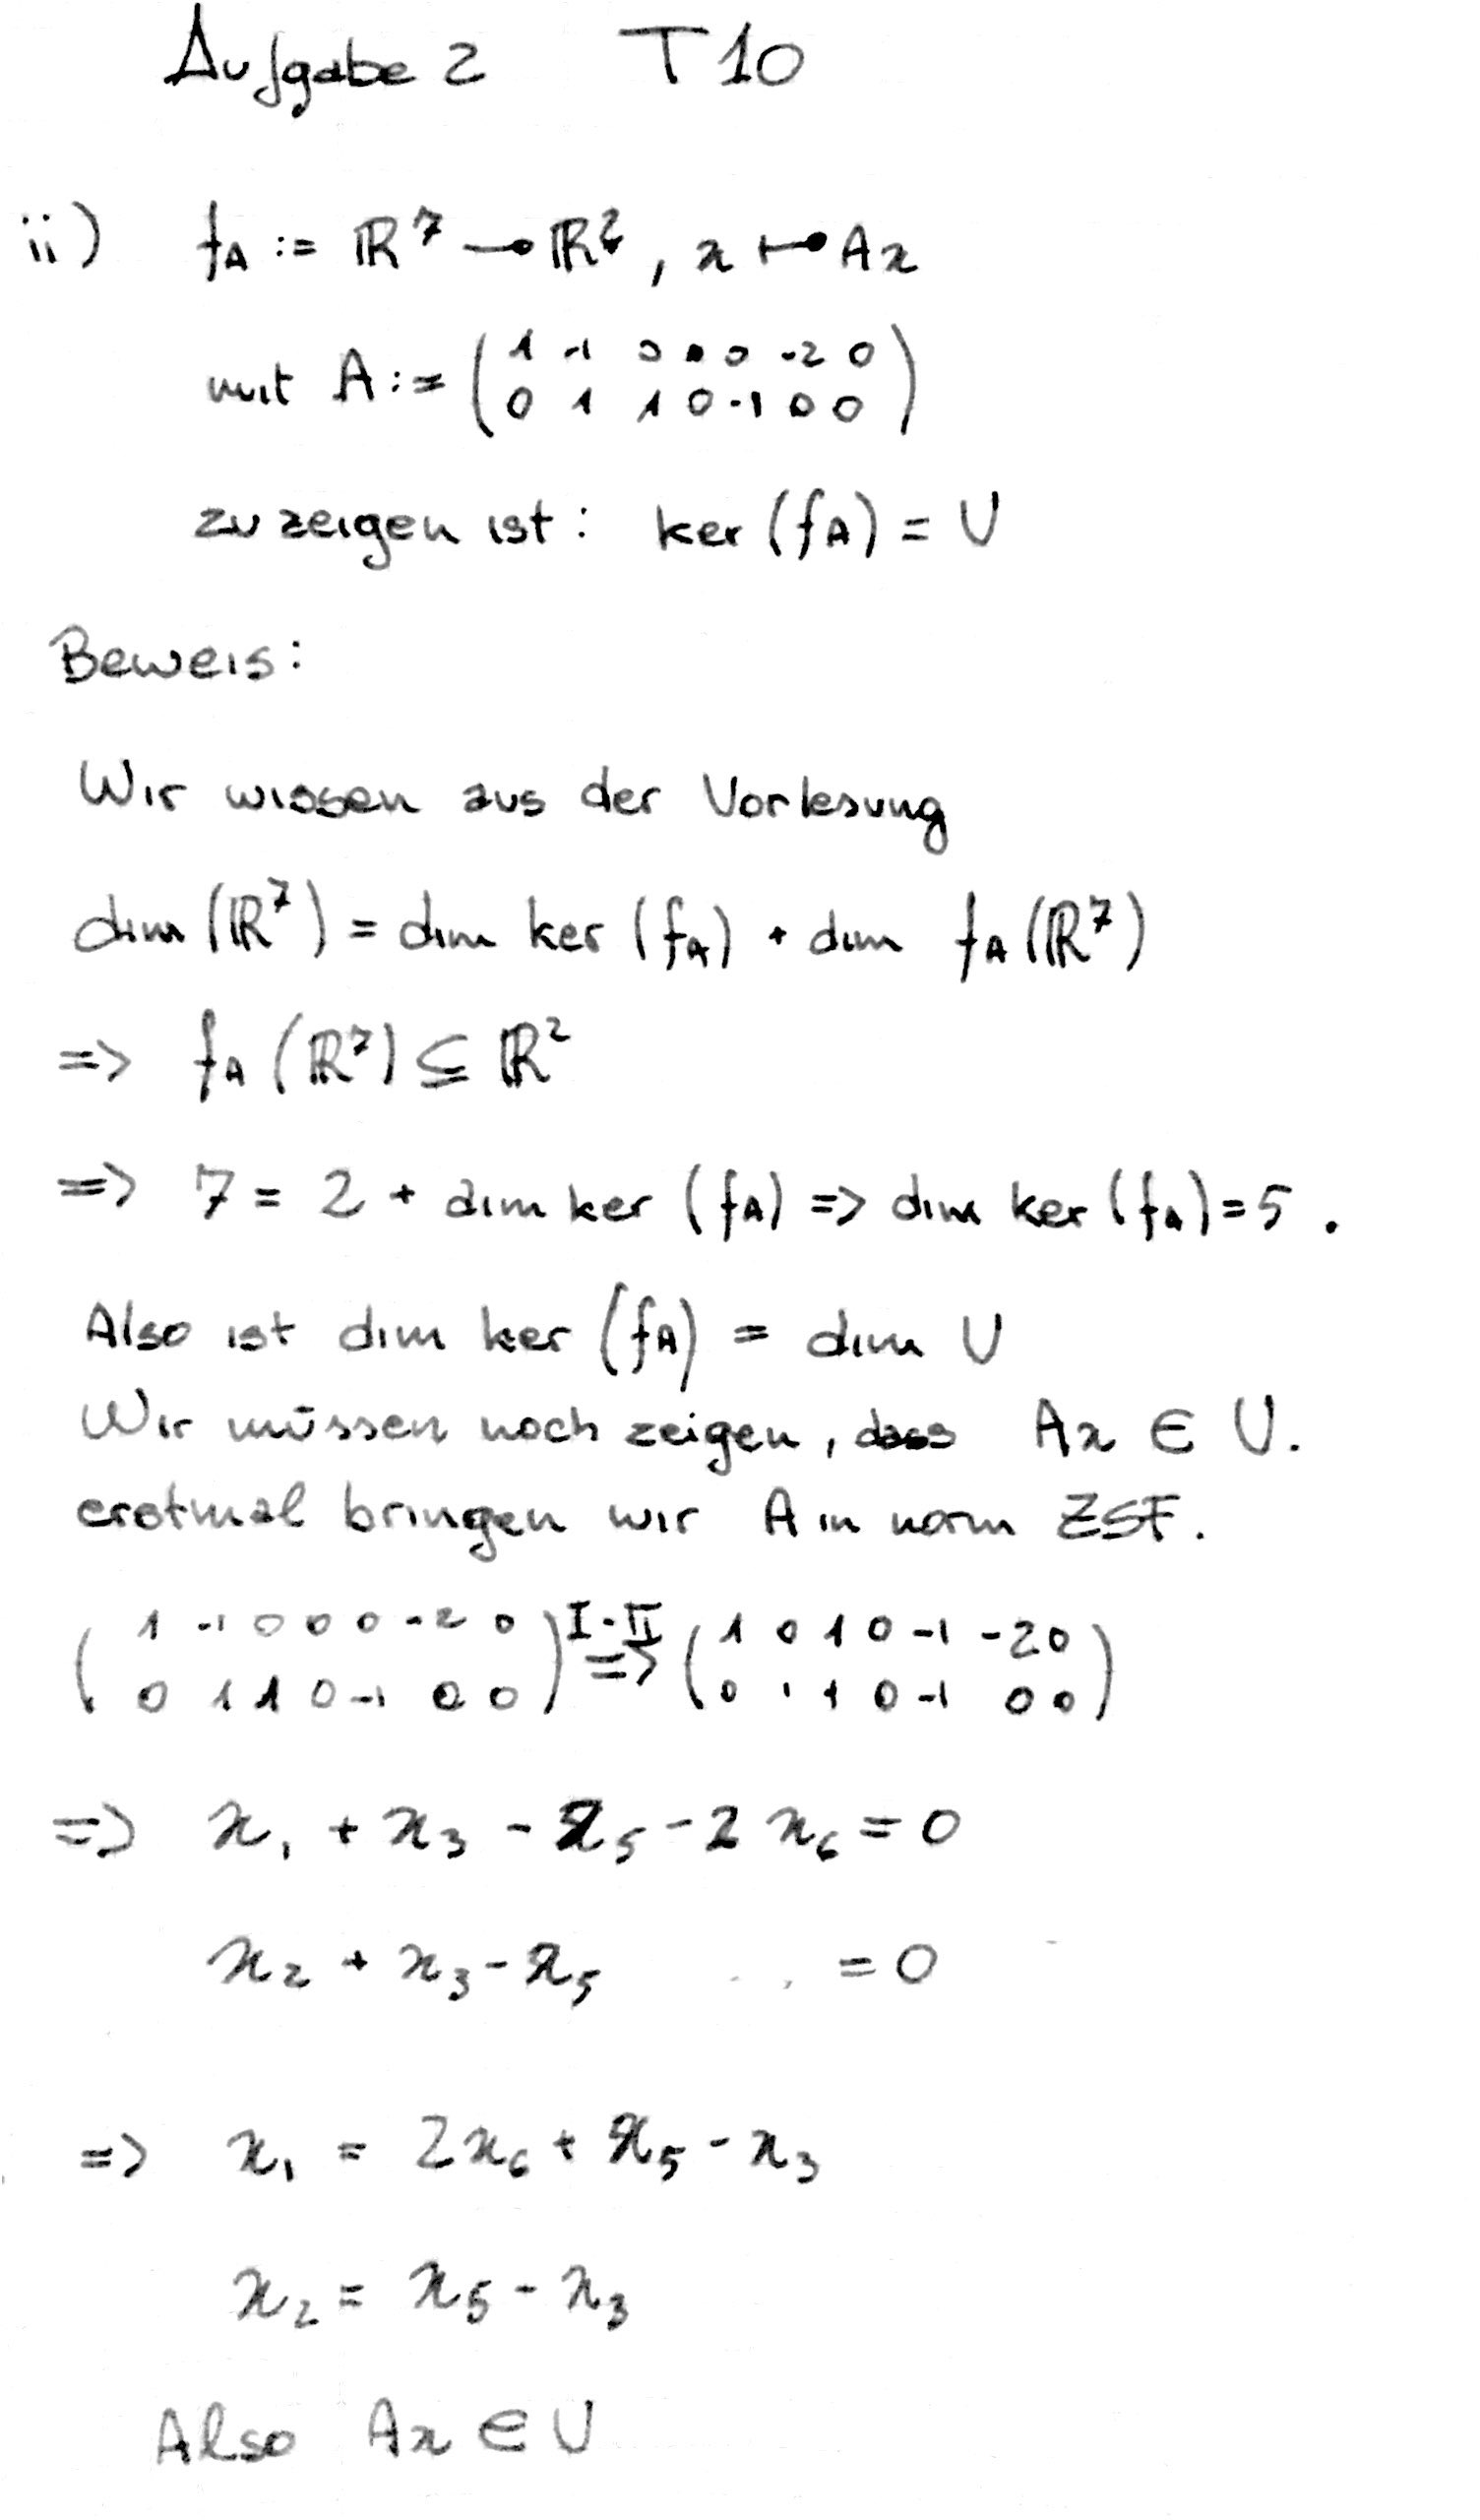 Aufgabe 2 T10
ii) fA := ℝ⁷ → ℝ², x ↦ Ax
mit A := ( 1 -1 0 0 0 -2 0
0 1 1 0 -1 0 0 )
zu zeigen ist: ker (fA) = U
Beweis:
Wir wissen aus der Vorlesung
dim (ℝ⁷) = dim ker (fA) + dim fA (ℝ⁷)
=> fA (ℝ⁷) ⊆ ℝ²
=> 7 = 2 + dim ker (fA) => dim ker (fA) = 5 .
Also ist dim ker (fA) = dim U
Wir müssen noch zeigen, dass Ax ∈ U.
erstmal bringen wir A in norm ZSF.
( 1 -1 0 0 0 -2 0 ) I+II ( 1 0 1 0 -1 -2 0 )
( 0 1 1 0 -1 0 0 ) => ( 0 1 1 0 -1 0 0 )
=> x₁ + x₃ - x₅ - 2 x₆ = 0
x₂ + x₃ - x₅ = 0
=> x₁ = 2x₆ + x₅ - x₃
x₂ = x₅ - x₃
Also Ax ∈ U